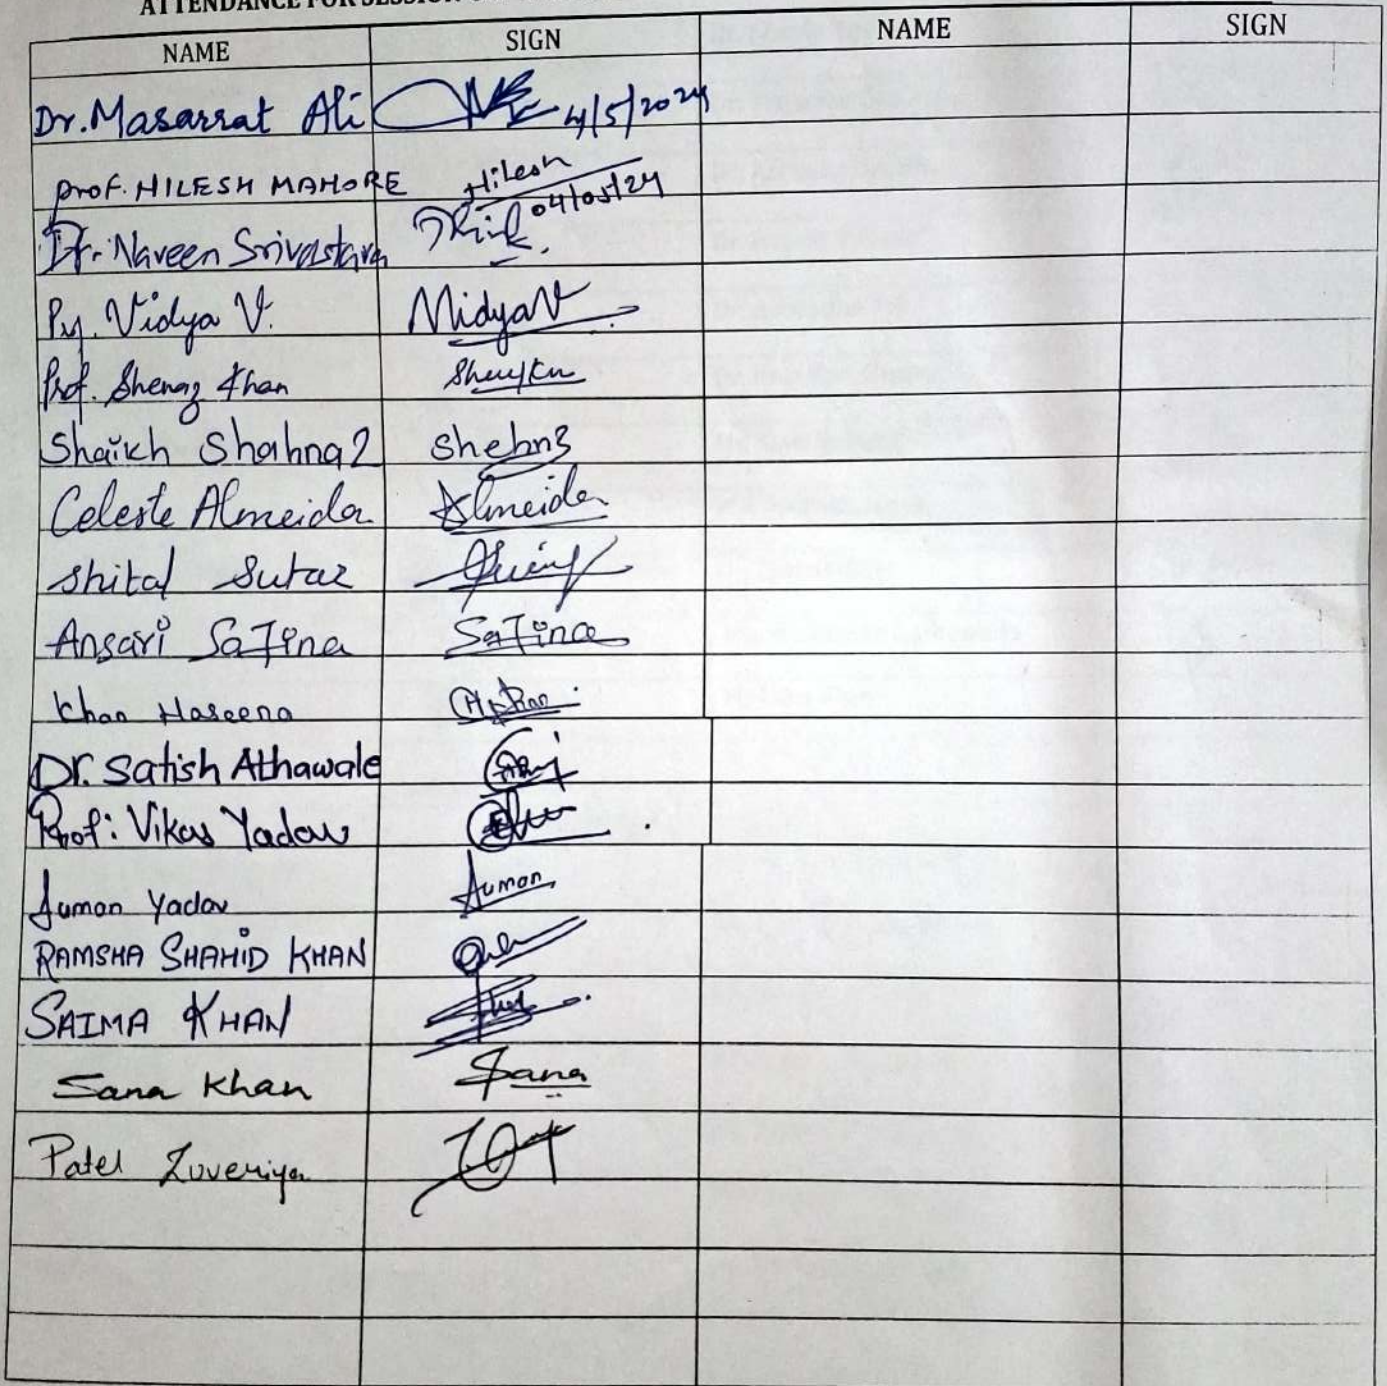 ATTENDANCE FOR SESSION
NAME SIGN NAME SIGN
Dr. Masarrat Ali 4/5/2024
Prof. HILESH MAHORE Hilesh 04/05/24
Dr. Naveen Srivastava
Vidya V. VidyaV
Prof. Shenaz Khan
Shaikh Shahnaz
Celeste Almeida Almeida
Shital Sutar
Ansari Safina Safina
Khan Haseena
Dr. Satish Athawale
Prof: Vikas Yadav
Suman Yadav Suman
RAMSHA SHAHID KHAN
SAIMA KHAN
Sana Khan Sana
Patel Zuveriya